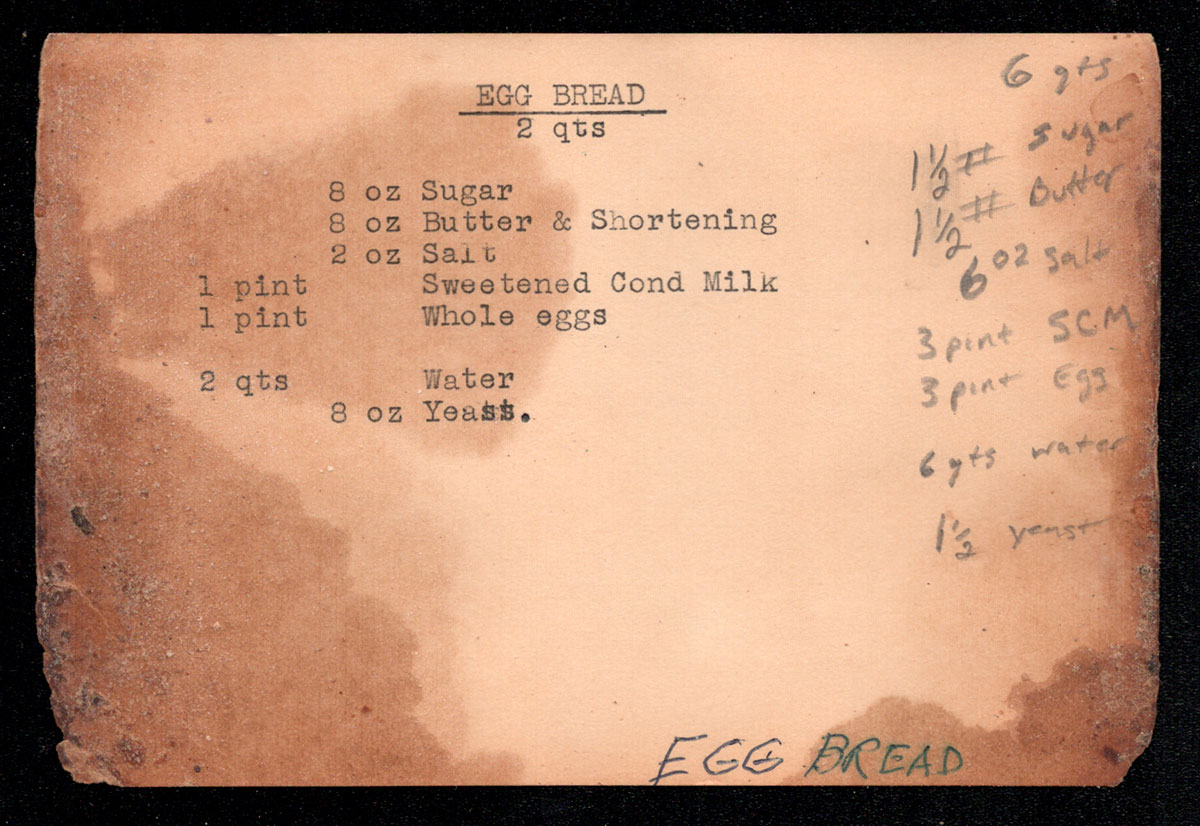 EGG BREAD
2 qts
8 oz Sugar
8 oz Butter & Shortening
2 oz Salt
1 pint Sweetened Cond Milk
1 pint Whole eggs
2 qts Water
8 oz Yeast.
6 qts
1 1/2 # Sugar
1 1/2 # Butter
6 oz Salt
3 pint SCM
3 pint Egg
6 qts water
1 1/2 yeast
EGG BREAD